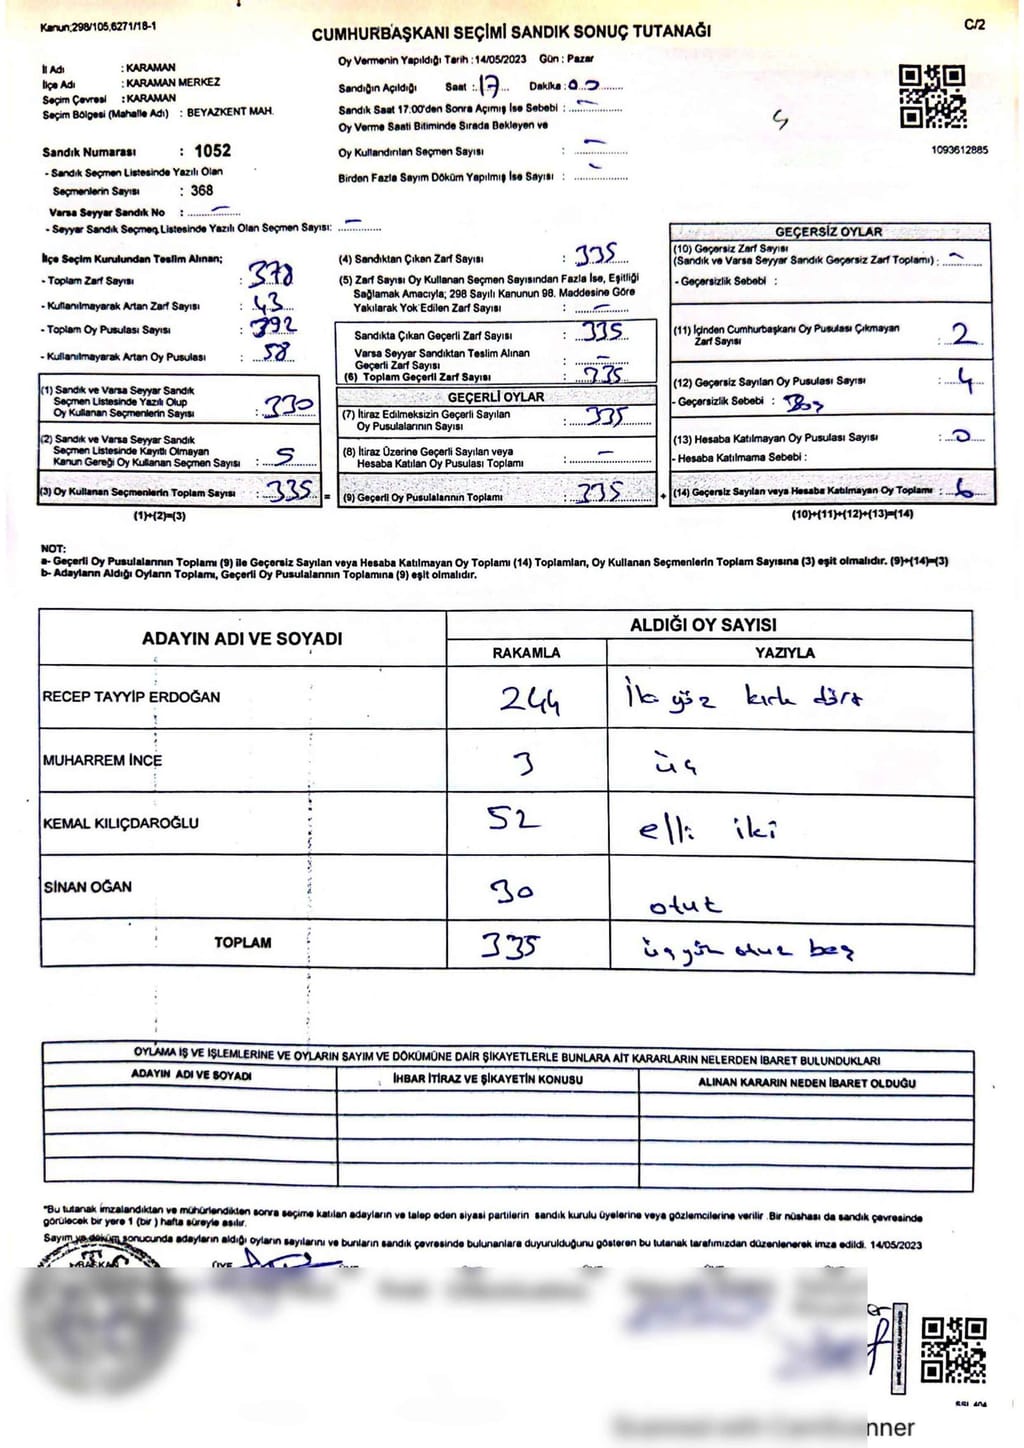 Kanun;298/105,6271/18-1
C/2
CUMHURBAŞKANI SEÇİMİ SANDIK SONUÇ TUTANAĞI
İl Adı : KARAMAN
İlçe Adı : KARAMAN MERKEZ
Seçim Çevresi : KARAMAN
Seçim Bölgesi (Mahalle Adı) : BEYAZKENT MAH.
Sandık Numarası : 1052
- Sandık Seçmen Listesinde Yazılı Olan
Seçmenlerin Sayısı : 368
Varsa Seyyar Sandık No : –
- Seyyar Sandık Seçmen Listesinde Yazılı Olan Seçmen Sayısı: –
Oy Vermenin Yapıldığı Tarih : 14/05/2023 Gün : Pazar
Sandığın Açıldığı Saat : 17 Dakika : 00
Sandık Saat 17.00'den Sonra Açımış İse Sebebi : –
Oy Verme Saati Bitiminde Sırada Bekleyen ve
Oy Kullandırılan Seçmen Sayısı : –
Birden Fazla Sayım Döküm Yapılmış İse Sayısı : –
1093612885
İlçe Seçim Kurulundan Teslim Alınan;
- Toplam Zarf Sayısı : 378
- Kullanılmayarak Artan Zarf Sayısı : 43
- Toplam Oy Pusulası Sayısı : 392
- Kullanılmayarak Artan Oy Pusulası : 58
(1) Sandık ve Varsa Seyyar Sandık
Seçmen Listesinde Yazılı Olup
Oy Kullanan Seçmenlerin Sayısı : 330
(2) Sandık ve Varsa Seyyar Sandık
Seçmen Listesinde Kayıtlı Olmayan
Kanun Gereği Oy Kullanan Seçmen Sayısı : 5
(3) Oy Kullanan Seçmenlerin Toplam Sayısı : 335 =
(1)+(2)=(3)
(4) Sandıktan Çıkan Zarf Sayısı : 335
(5) Zarf Sayısı Oy Kullanan Seçmen Sayısından Fazla İse, Eşitliği
Sağlamak Amacıyla; 298 Sayılı Kanunun 98. Maddesine Göre
Yakılarak Yok Edilen Zarf Sayısı : –
Sandıkta Çıkan Geçerli Zarf Sayısı : 335
Varsa Seyyar Sandıktan Teslim Alınan
Geçerli Zarf Sayısı : –
(6) Toplam Geçerli Zarf Sayısı : 335
GEÇERLİ OYLAR
(7) İtiraz Edilmeksizin Geçerli Sayılan
Oy Pusulalarının Sayısı : 335
(8) İtiraz Üzerine Geçerli Sayılan veya
Hesaba Katılan Oy Pusulası Toplamı : –
(9) Geçerli Oy Pusulalarının Toplamı : 335 +
GEÇERSİZ OYLAR
(10) Geçersiz Zarf Sayısı
(Sandık ve Varsa Seyyar Sandık Geçersiz Zarf Toplamı) : –
- Geçersizlik Sebebi :
(11) İçinden Cumhurbaşkanı Oy Pusulası Çıkmayan
Zarf Sayısı : 2
(12) Geçersiz Sayılan Oy Pusulası Sayısı : 4
- Geçersizlik Sebebi : Boş
(13) Hesaba Katılmayan Oy Pusulası Sayısı : 0
- Hesaba Katılmama Sebebi :
(14) Geçersiz Sayılan veya Hesaba Katılmayan Oy Toplamı : 6
(10)+(11)+(12)+(13)=(14)
NOT:
a- Geçerli Oy Pusulalarının Toplamı (9) ile Geçersiz Sayılan veya Hesaba Katılmayan Oy Toplamı (14) Toplamları, Oy Kullanan Seçmenlerin Toplam Sayısına (3) eşit olmalıdır. (9)+(14)=(3)
b- Adayların Aldığı Oyların Toplamı, Geçerli Oy Pusulalarının Toplamına (9) eşit olmalıdır.
ADAYIN ADI VE SOYADI
ALDIĞI OY SAYISI
RAKAMLA YAZIYLA
RECEP TAYYİP ERDOĞAN 244 İki yüz kırk dört
MUHARREM İNCE 3 üç
KEMAL KILIÇDAROĞLU 52 elli iki
SİNAN OĞAN 30 otuz
TOPLAM 335 üçyüz otuz beş
OYLAMA İŞ VE İŞLEMLERİNE VE OYLARIN SAYIM VE DÖKÜMÜNE DAİR ŞİKAYETLERLE BUNLARA AİT KARARLARIN NELERDEN İBARET BULUNDUKLARI
ADAYIN ADI VE SOYADI İHBAR İTİRAZ VE ŞİKAYETİN KONUSU ALINAN KARARIN NEDEN İBARET OLDUĞU
*Bu tutanak imzalandıktan ve mühürlendikten sonra seçime katılan adayların ve talep eden siyasi partilerin sandık kurulu üyelerine veya gözlemcilerine verilir. Bir nüshası da sandık çevresinde
görülecek bir yere 1 (bir ) hafta süreyle asılır.
Sayım ve döküm sonucunda adayların aldığı oyların sayılarını ve bunların sandık çevresinde bulunanlara duyurulduğunu gösteren bu tutanak tarafımızdan düzenlenerek imza edildi. 14/05/2023
BAŞKAN ÜYE